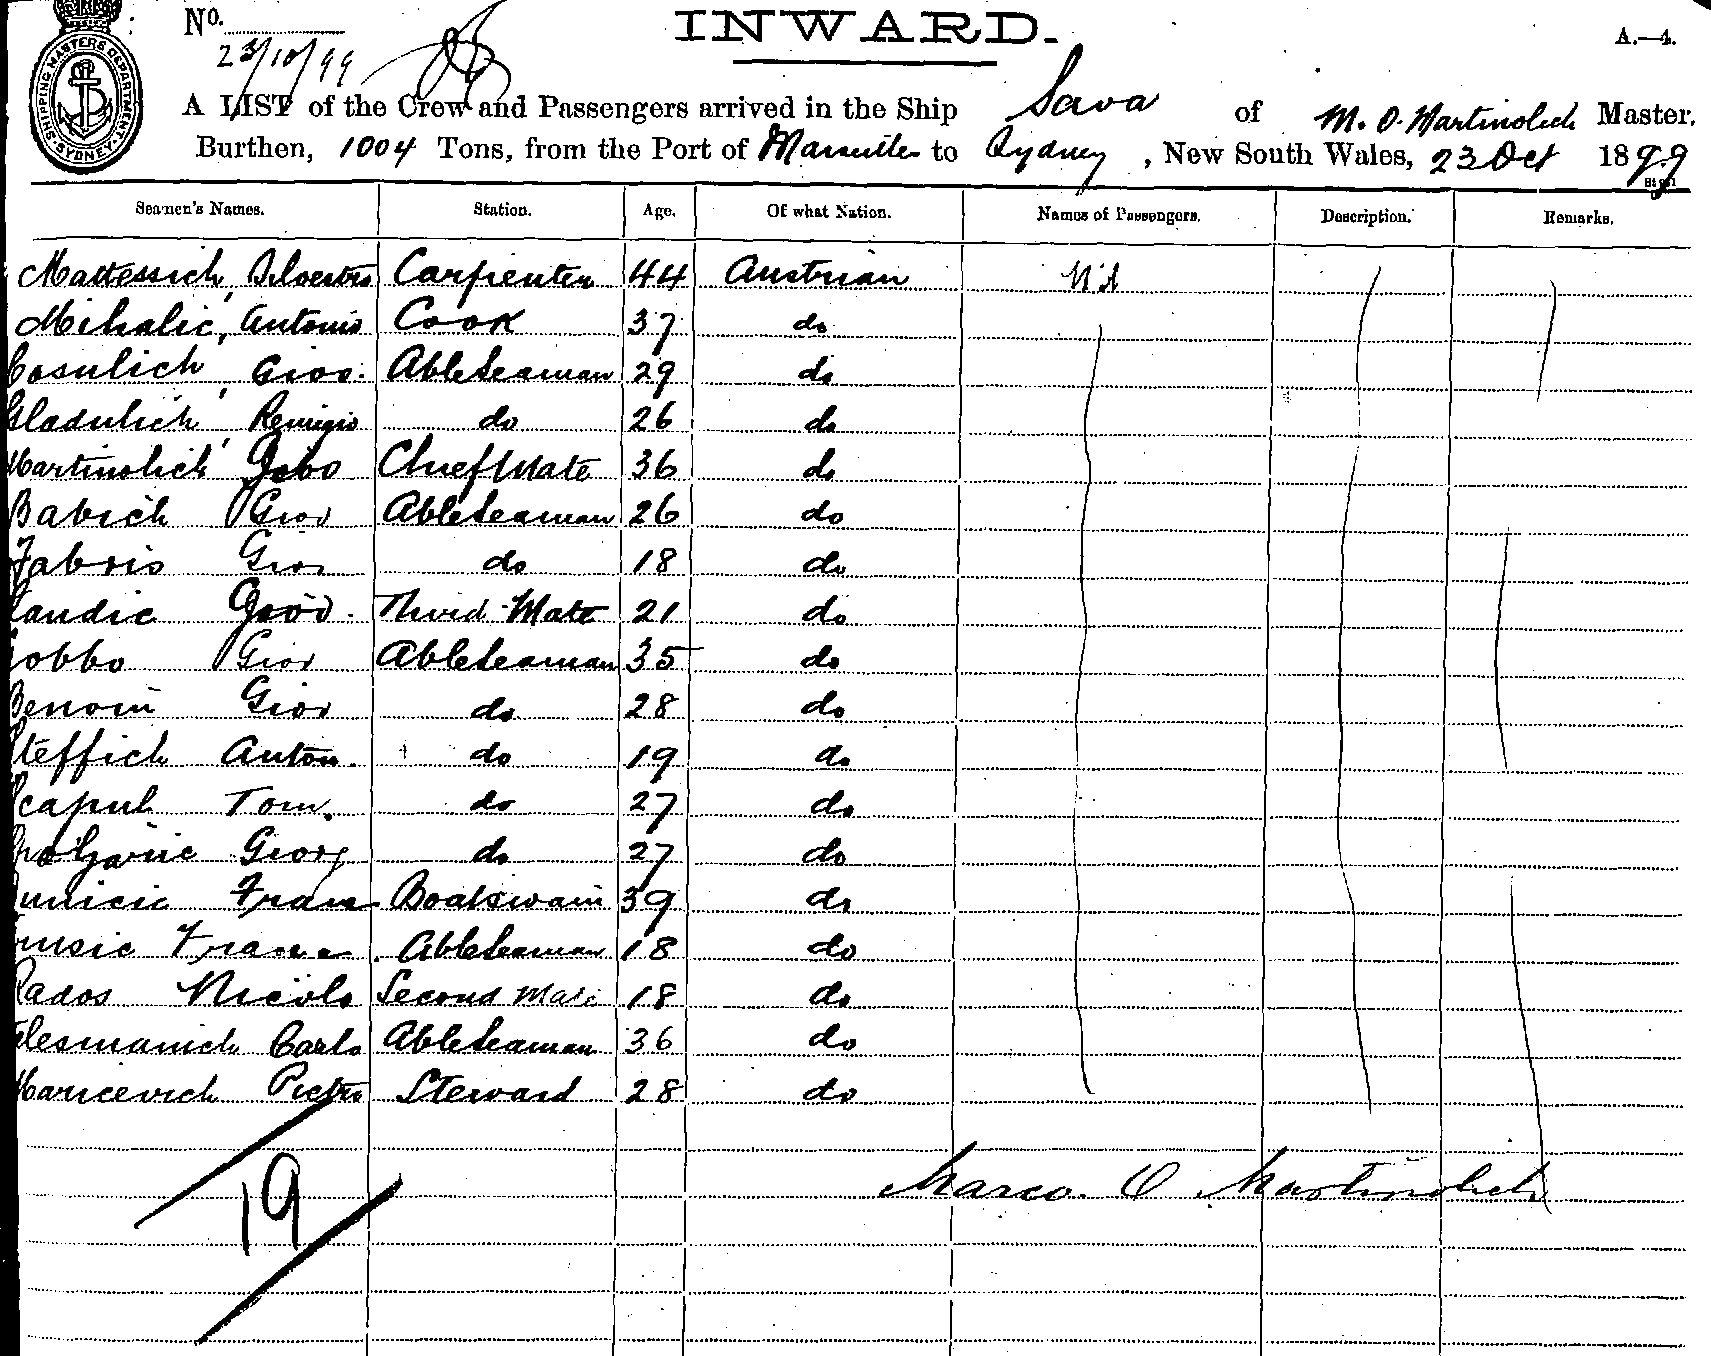 No.
INWARD.
A.—4.
23/10/99
SHIPPING MASTERS DEPARTMENT SYDNEY
A LIST of the Crew and Passengers arrived in the Ship Sava of M. O. Martinolich Master.
Burthen, 1004 Tons, from the Port of Marseilles to Sydney, New South Wales, 23 Oct 1899
Seamen's Names. Station. Age. Of what Nation. Names of Passengers. Description. Remarks.
Mattessich, Silvestro Carpenter 44 Austrian Nil
Mihalic, Antonio Cook 37 do
Cosulich, Giov. Able Seaman 29 do
Gladulich, Remigio do 26 do
Martinolich Chief Mate 36 do
Babich Giov Able Seaman 26 do
Fabris Giov do 18 do
Giov. Third Mate 21 do
Giov Able Seaman 35 do
Giov do 28 do
Steffich Anton. do 19 do
Scapul Tom. do 27 do
Giorg do 27 do
Franc Boatswain 39 do
Franc Able Seaman 18 do
Rados Nicolo Second Mate 18 do
Carlo Able Seaman 36 do
Maricevich Pietro Steward 28 do
Marco. O Martinolich
19